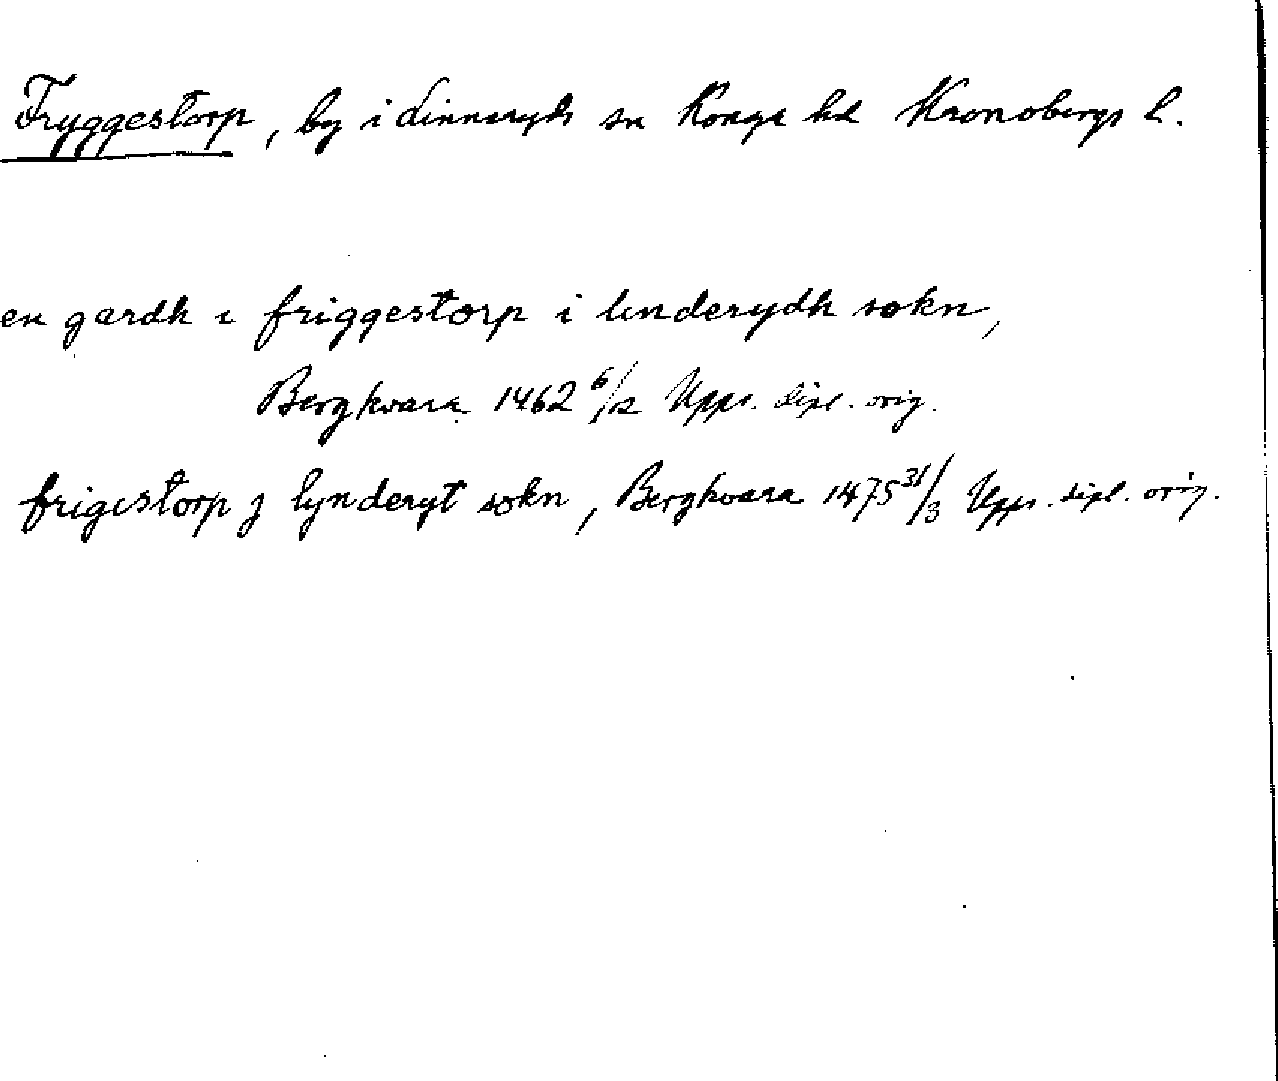 Fryggestorp, by i Linneryds sn Konga hd Kronobergs l.
en gardh i friggestorp i linderydh sokn,
Bergkvara 1462 6/2 Upps. dipl. orig.
frigistorp j lynderyt sokn, Bergkvara 1475 31/3 Upps. dipl. orig.